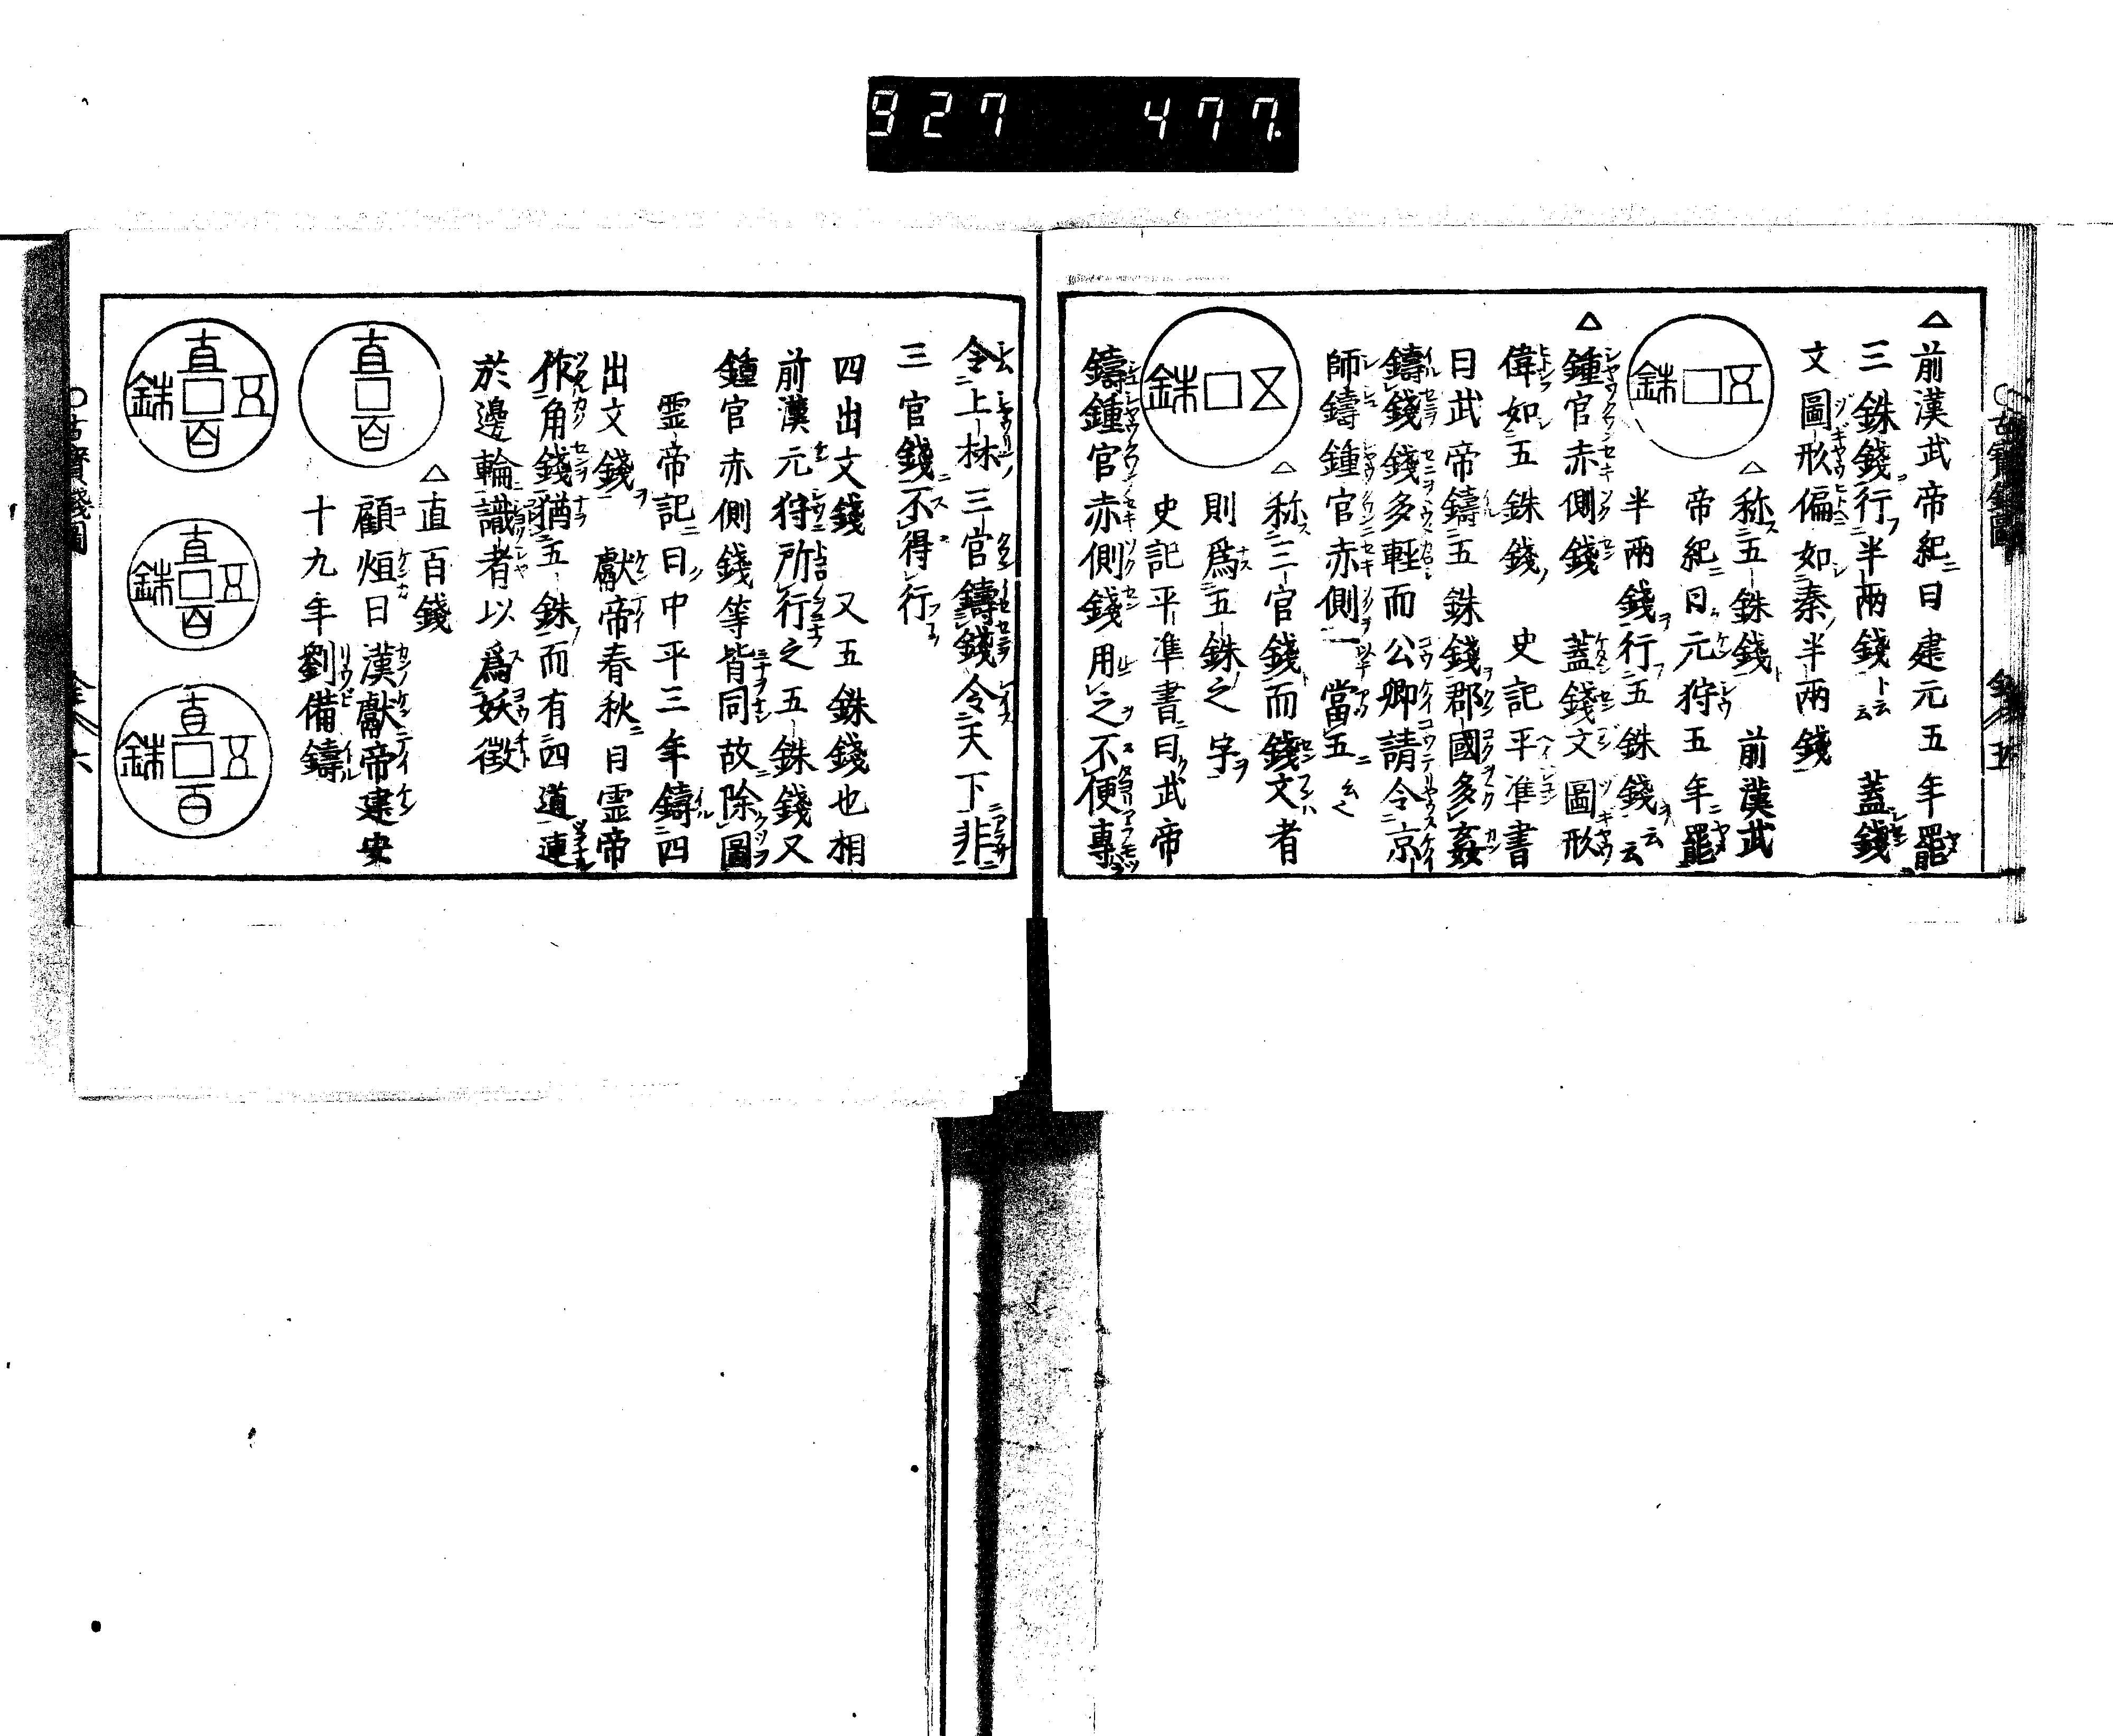 927 477.
△前漢武帝紀曰建元五年罷
三銖錢行半兩錢ト云 蓋錢
文圖形偏如秦半兩錢
五銖
△称五銖錢 前漢武
帝紀曰元狩五年罷
半兩錢行五銖錢云云
△鍾官赤側錢 蓋錢文圖形
偉如五銖錢 史記平準書
曰武帝鑄五銖錢郡國多姦
鑄錢錢多輕而公卿請令京
師鑄鍾官赤側一當五云〻
五銖
△称三官錢而錢文者
則為五銖之字
史記平準書曰武帝
鑄鍾官赤側錢用之不便專
令上林三官鑄錢令天下非
三官錢不得行
四出文錢 又五銖錢也相
前漢元狩所行之五銖錢又
鍾官赤側錢等皆同故除圖
霊帝記曰中平三年鑄四
出文錢 獻帝春秋曰霊帝
作角錢猶五銖而有四道連
於邊輪識者以為妖徵
直百
△直百錢
顧烜曰漢獻帝建安
十九年劉備鑄
直百五銖
直百五銖
直百五銖
古寳錢圖 全 五
古寳錢圖 全 六